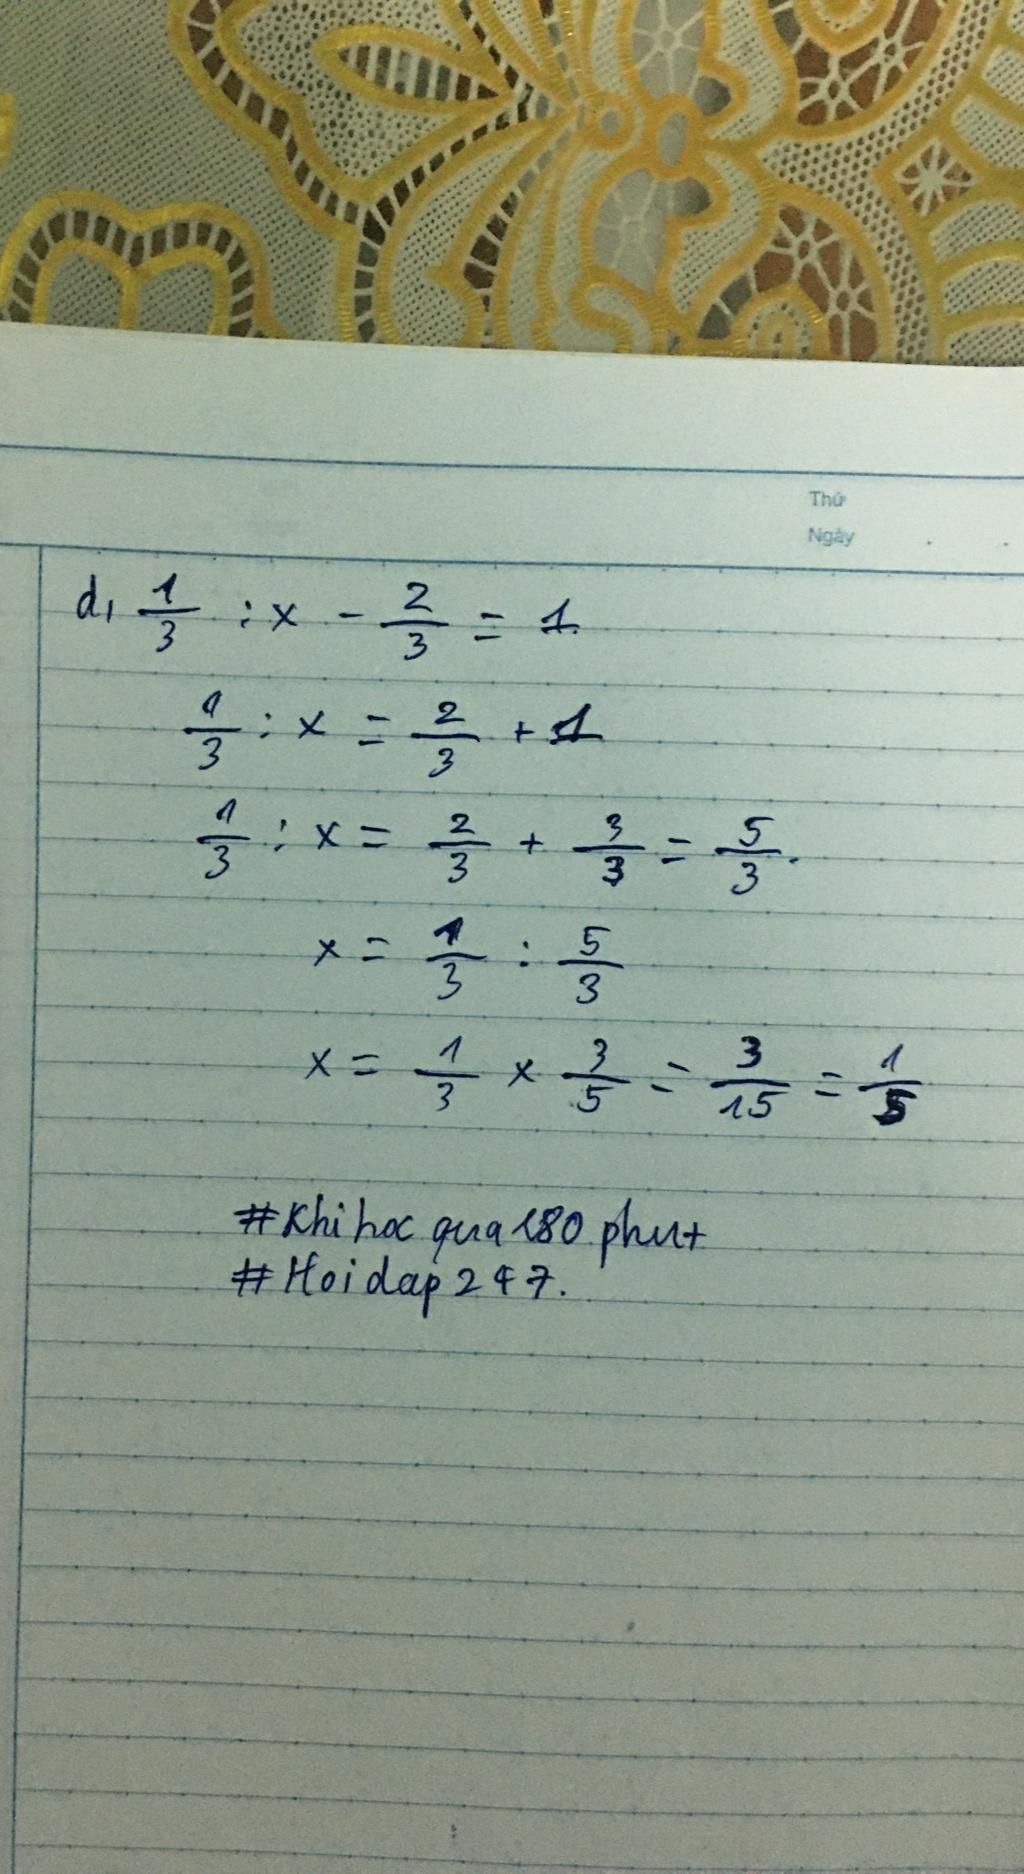 Thứ
Ngày
d, 1/3 : x - 2/3 = 1
1/3 : x = 2/3 + 1
1/3 : x = 2/3 + 3/3 = 5/3.
x = 1/3 : 5/3
x = 1/3 x 3/5 = 3/15 = 1/5
#Khi hoc qua 180 phut
#Hoidap 247.